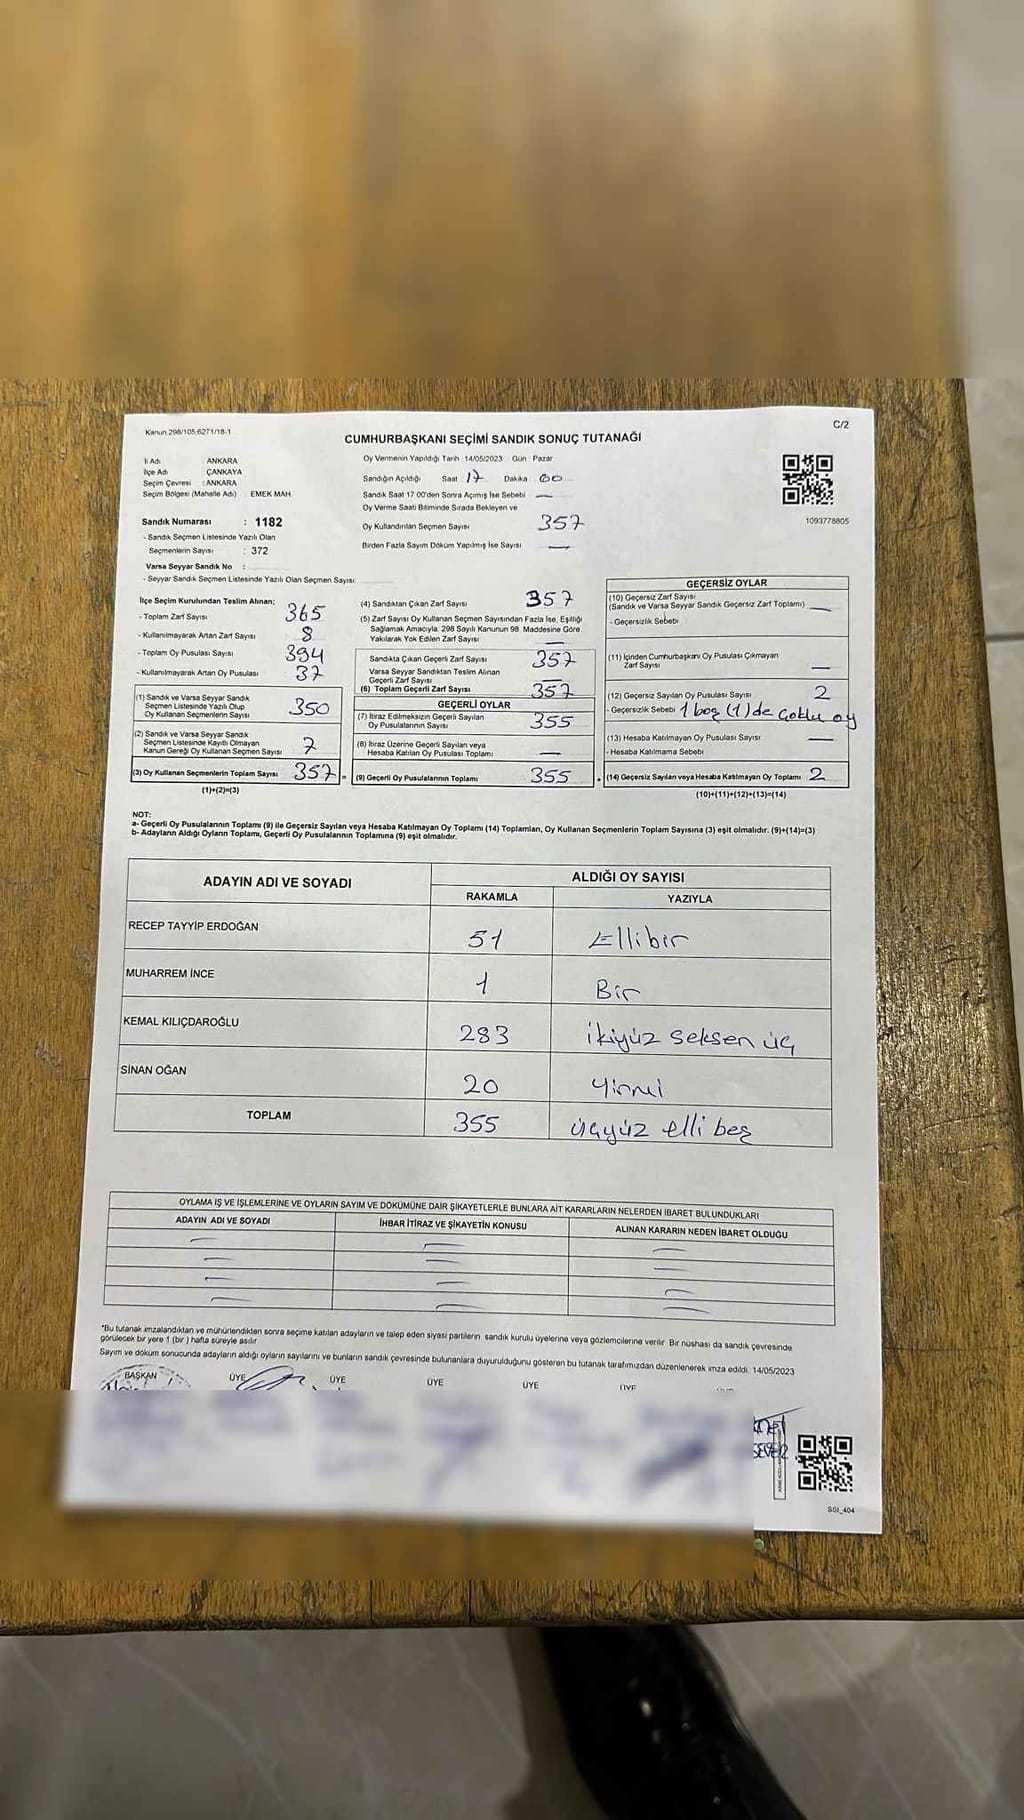 Kanun 298/105,6271/18-1
C/2
CUMHURBAŞKANI SEÇİMİ SANDIK SONUÇ TUTANAĞI
İl Adı : ANKARA
İlçe Adı : ÇANKAYA
Seçim Çevresi : ANKARA
Seçim Bölgesi (Mahalle Adı) : EMEK MAH
Sandık Numarası : 1182
- Sandık Seçmen Listesinde Yazılı Olan
Seçmenlerin Sayısı : 372
Varsa Seyyar Sandık No :
- Seyyar Sandık Seçmen Listesinde Yazılı Olan Seçmen Sayısı
Oy Vermenin Yapıldığı Tarih 14/05/2023 Gün : Pazar
Sandığın Açıldığı Saat : 17 Dakika : 00
Sandık Saat 17 00'den Sonra Açımış İse Sebebi —
Oy Verme Saati Bitiminde Sırada Bekleyen ve
Oy Kullandırılan Seçmen Sayısı 357
Birden Fazla Sayım Döküm Yapılmış İse Sayısı —
1093778805
İlçe Seçim Kurulundan Teslim Alınan;
- Toplam Zarf Sayısı 365
- Kullanılmayarak Artan Zarf Sayısı 8
- Toplam Oy Pusulası Sayısı 394
- Kullanılmayarak Artan Oy Pusulası 37
(1) Sandık ve Varsa Seyyar Sandık
Seçmen Listesinde Yazılı Olup
Oy Kullanan Seçmenlerin Sayısı 350
(2) Sandık ve Varsa Seyyar Sandık
Seçmen Listesinde Kayıtlı Olmayan
Kanun Gereği Oy Kullanan Seçmen Sayısı 7
(3) Oy Kullanan Seçmenlerin Toplam Sayısı 357 =
(1)+(2)=(3)
(4) Sandıktan Çıkan Zarf Sayısı 357
(5) Zarf Sayısı Oy Kullanan Seçmen Sayısından Fazla İse, Eşitliği
Sağlamak Amacıyla, 298 Sayılı Kanunun 98. Maddesine Göre
Yakılarak Yok Edilen Zarf Sayısı —
Sandıkta Çıkan Geçerli Zarf Sayısı 357
Varsa Seyyar Sandıktan Teslim Alınan
Geçerli Zarf Sayısı —
(6) Toplam Geçerli Zarf Sayısı 357
GEÇERLİ OYLAR
(7) İtiraz Edilmeksizin Geçerli Sayılan
Oy Pusulalarının Sayısı 355
(8) İtiraz Üzerine Geçerli Sayılan veya
Hesaba Katılan Oy Pusulası Toplamı —
(9) Geçerli Oy Pusulalarının Toplamı 355 +
GEÇERSİZ OYLAR
(10) Geçersiz Zarf Sayısı
(Sandık ve Varsa Seyyar Sandık Geçersiz Zarf Toplamı) —
- Geçersizlik Sebebi
(11) İçinden Cumhurbaşkanı Oy Pusulası Çıkmayan
Zarf Sayısı —
(12) Geçersiz Sayılan Oy Pusulası Sayısı 2
- Geçersizlik Sebebi 1 boş (1)'de çoklu oy
(13) Hesaba Katılmayan Oy Pusulası Sayısı —
- Hesaba Katılmama Sebebi
(14) Geçersiz Sayılan veya Hesaba Katılmayan Oy Toplamı 2
(10)+(11)+(12)+(13)=(14)
NOT:
a- Geçerli Oy Pusulalarının Toplamı (9) ile Geçersiz Sayılan veya Hesaba Katılmayan Oy Toplamı (14) Toplamları, Oy Kullanan Seçmenlerin Toplam Sayısına (3) eşit olmalıdır. (9)+(14)=(3)
b- Adayların Aldığı Oyların Toplamı, Geçerli Oy Pusulalarının Toplamına (9) eşit olmalıdır.
ADAYIN ADI VE SOYADI
ALDIĞI OY SAYISI
RAKAMLA YAZIYLA
RECEP TAYYİP ERDOĞAN 51 Ellibir
MUHARREM İNCE 1 Bir
KEMAL KILIÇDAROĞLU 283 ikiyüz seksen üç
SİNAN OĞAN 20 Yirmi
TOPLAM 355 üçyüz elli beş
OYLAMA İŞ VE İŞLEMLERİNE VE OYLARIN SAYIM VE DÖKÜMÜNE DAİR ŞİKAYETLERLE BUNLARA AİT KARARLARIN NELERDEN İBARET BULUNDUKLARI
ADAYIN ADI VE SOYADI İHBAR İTİRAZ VE ŞİKAYETİN KONUSU ALINAN KARARIN NEDEN İBARET OLDUĞU
— — —
— — —
— — —
— — —
*Bu tutanak imzalandıktan ve mühürlendikten sonra seçime katılan adayların ve talep eden siyasi partilerin sandık kurulu üyelerine veya gözlemcilerine verilir. Bir nüshası da sandık çevresinde
görülecek bir yere 1 (bir) hafta süreyle asılır
Sayım ve döküm sonucunda adayların aldığı oyların sayılarını ve bunların sandık çevresinde bulunanlara duyurulduğunu gösteren bu tutanak tarafımızdan düzenlenerek imza edildi. 14/05/2023
BAŞKAN ÜYE ÜYE ÜYE ÜYE ÜYE
SSI_404